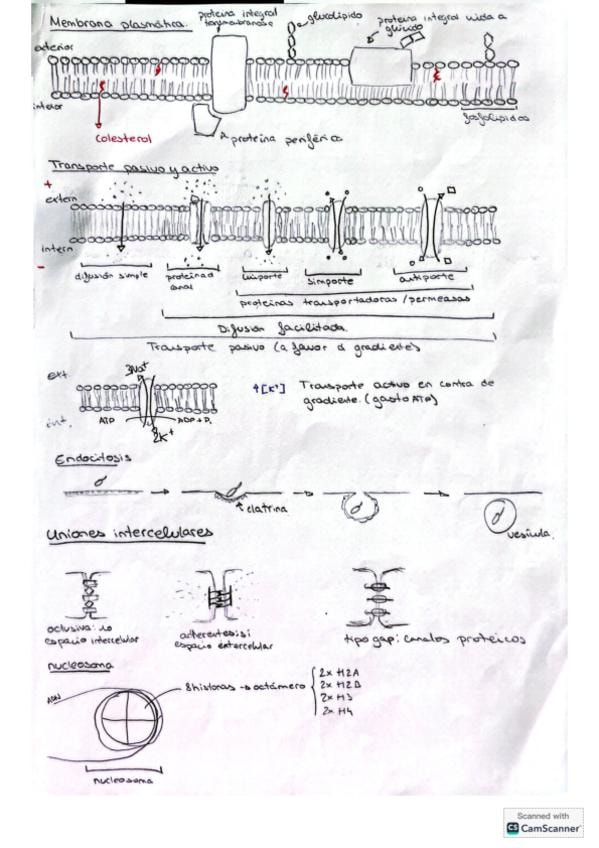 Membrana plasmática.
proteina integral
transmembranosa
glucolípido
proteina integral unida a
glúcido
exterior
interior
colesterol
proteina periférica
fosfolípidos
Transporte pasivo y activo
+
extern
intern
-
difusión simple
proteina d
canal
uniporte
simporte
antiporte
proteinas transportadoras/permeasas
Difusión facilitada.
Transporte pasivo (a favor d gradiente)
ext
3Na+
int.
ATP
ADP + Pi
2K+
↑[K+] Transporte activo en contra de
gradiente. (gasto ATP)
Endocitosis
clatrina
vesícula.
Uniones intercelulares
oclusiva: no
espacio intercelular
adherentes: sí
espacio extercelular
tipo gap: canales proteicos
nucleosoma
ADN
8 histonas → octámero
2x H2A
2x H2B
2x H3
2x H4
nucleosoma
Scanned with
CS CamScanner